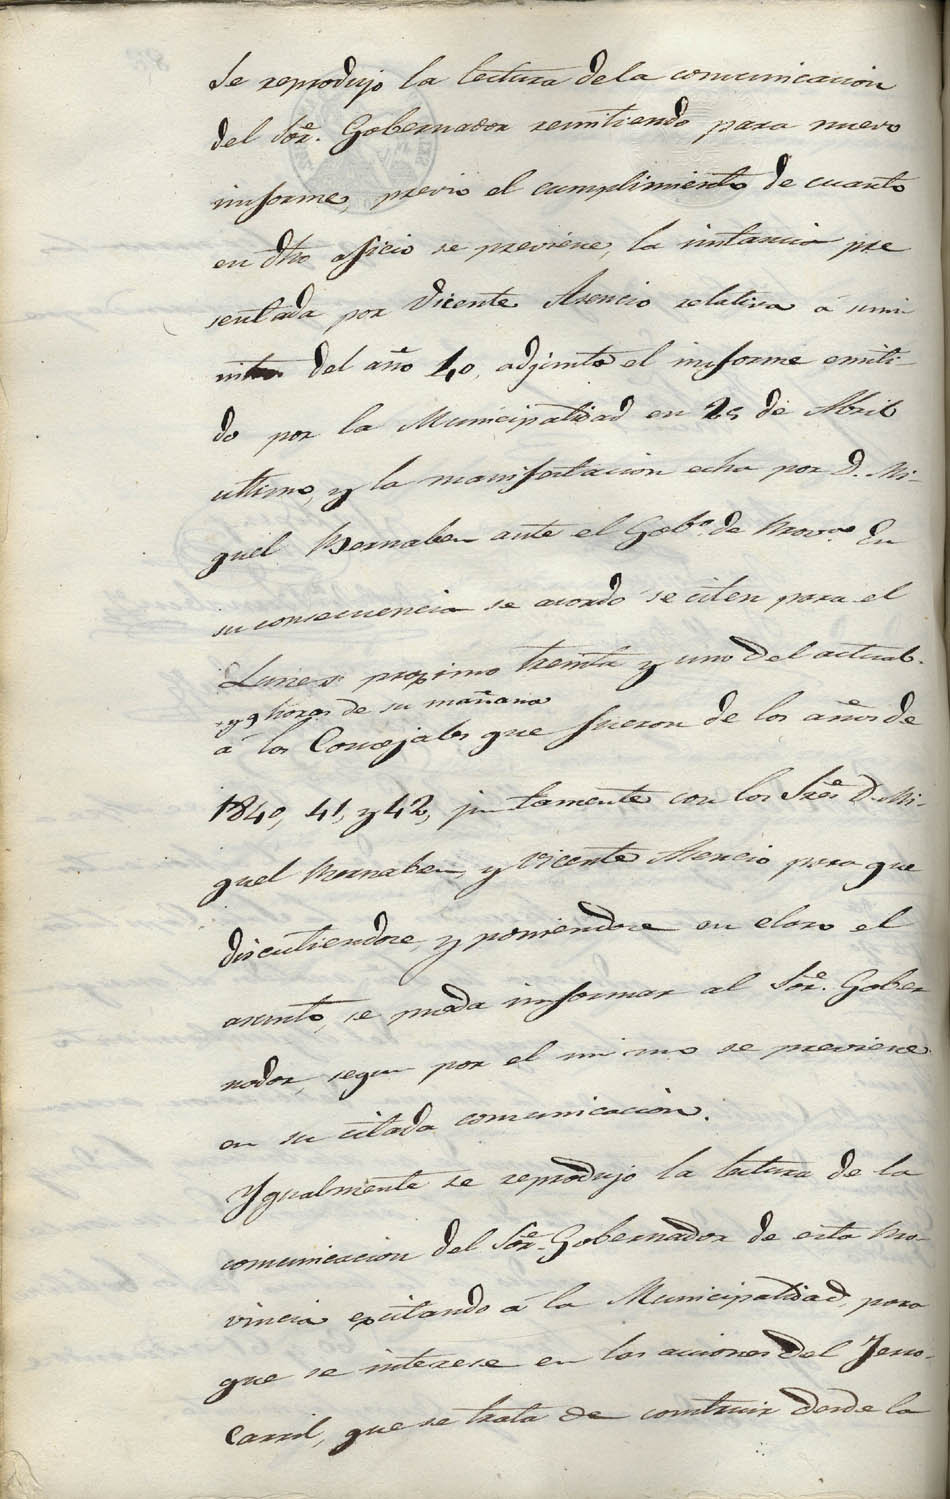 Se reprodujo la lectura de la comunicacion
del Sor. Gobernador remitiendo para nuevo
informe, previo el cumplimiento de cuanto
en dho oficio se previene, la instancia pre
sentada por Vicente Asencio relativa á sumi
del año 40, adjunto el informe emiti-
do por la Municipalidad en 25 de Abril
ultimo, y la manifestacion echa por D. Mi-
guel Bernabeu ante el Gobo. de Prova. En
su consecuencia se acordó se citen para el
Lunes proximo treinta y uno del actual
y 9 horas de su mañana
á los Concejales que fueron de los años de
1840, 41, y 42, juntamente con los Sres D. Mi-
guel Bernabeu, y Vicente Asencio para que
discutiendose y poniendose en claro el
asunto, se pueda informar al Sor. Gober
nador, segun por el mismo se previene
en su citada comunicacion.
Ygualmente se reprodujo la lectura de la
comunicacion del Sor. Gobernador de esta Pro-
vincia excitando á la Municipalidad, para
que se interese en las acciones del Ferro-
Carril, que se trata de construir desde la